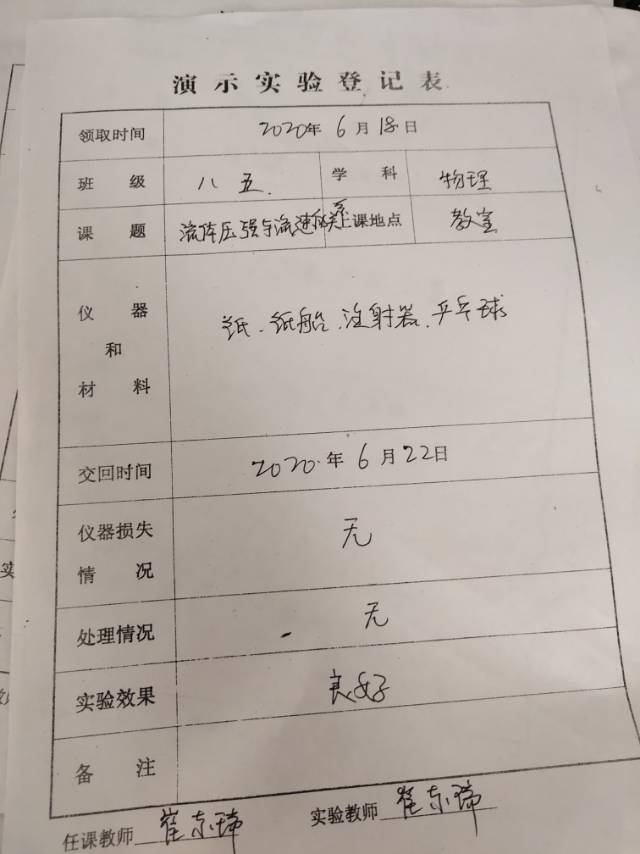 演示实验登记表
领取时间 2020年 6月18日
班级 八五. 学科 物理
课题 流体压强与流速的关系 上课地点 教室
仪器和材料 纸、纸船、注射器、乒乓球
交回时间 2020.年 6月22日
仪器损失情况 无
处理情况 无
实验效果 良好
备注
任课教师 崔东瑞 实验教师 崔东瑞